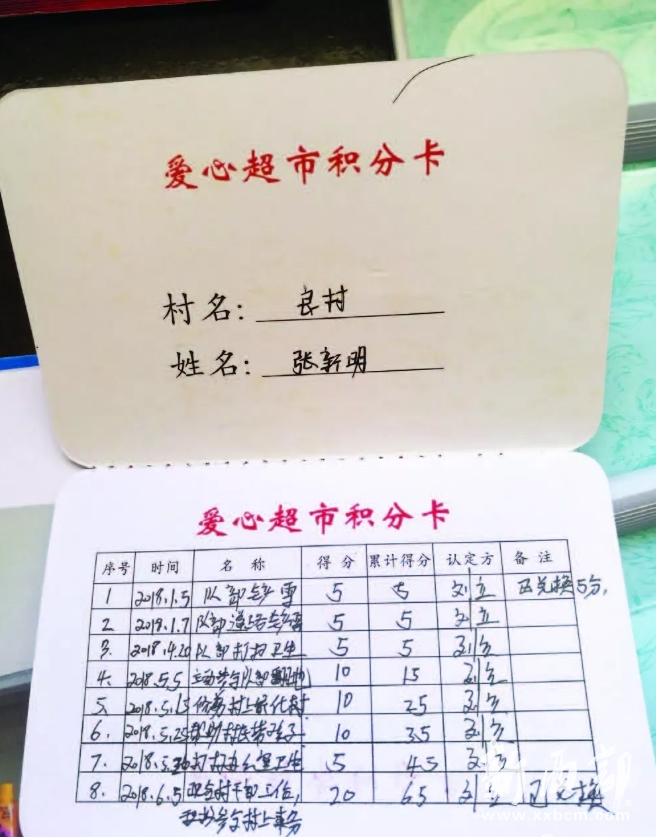 爱心超市积分卡
村名: 良村
姓名: 张新明
爱心超市积分卡
序号 时间 名 称 得 分 累计得分 认定方 备 注
1 2018.1.5 队部铲雪 5 5 刘立 已兑换5分,
2. 2018.1.7 队部道路铲雪 5 5 刘立
3. 2018.4.20 队部打扫卫生 5 5 刘立
4. 2018.5.5 主动参与队部翻地 10 15 刘立
5. 2018.5.15 修剪村上绿化树 10 25 刘立
6. 2018.5.25 帮助村民带孩子 10 35 刘立
7. 2018.5.30 打扫办公室卫生 5 45 刘立
8. 2018.6.5 配合村干部工作, 20 65 刘立 已兑换
积极参与村上事务
新西部
www.xxbcm.com